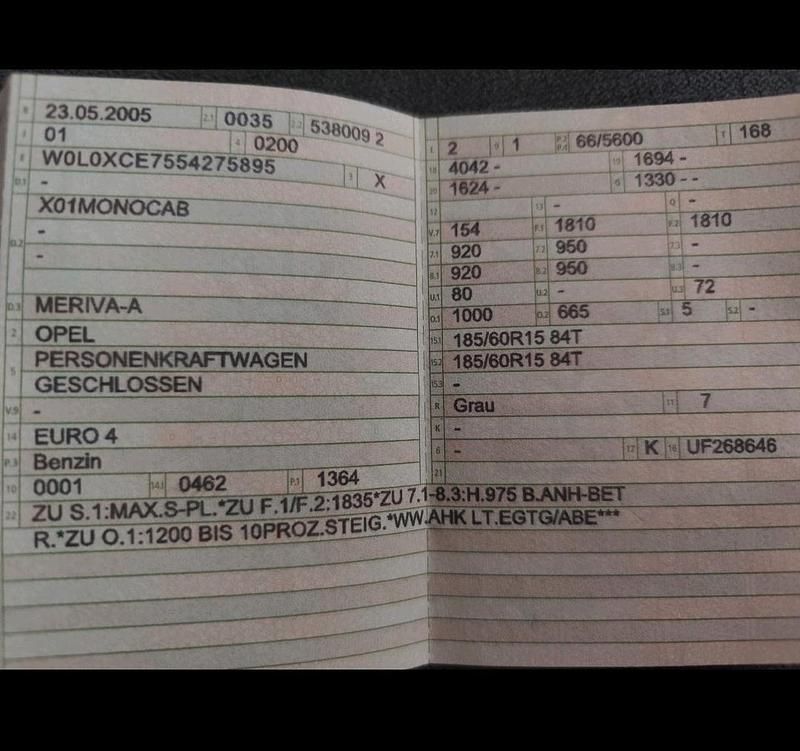 B 23.05.2005 2.1 0035 2.2 538009 2
J 01 4 0200
E W0L0XCE7554275895 3 X
D.1 -
D.2 X01MONOCAB
-
-
D.3 MERIVA-A
2 OPEL
5 PERSONENKRAFTWAGEN
GESCHLOSSEN
V.9 -
14 EURO 4
P.3 Benzin
10 0001 14.1 0462 P.1 1364
22 ZU S.1:MAX.S-PL.*ZU F.1/F.2:1835*ZU 7.1-8.3:H.975 B.ANH-BET
R.*ZU O.1:1200 BIS 10PROZ.STEIG.*WW.AHK LT.EGTG/ABE***
L 2 9 1 P.2 P.4 66/5600 T 168
18 4042 - 19 1694 -
20 1624 - G 1330 - -
12 13 - Q -
V.7 154 F.1 1810 F.2 1810
7.1 920 7.2 950 7.3 -
8.1 920 8.2 950 8.3 -
U.1 80 U.2 - U.3 72
O.1 1000 O.2 665 S.1 5 S.2 -
15.1 185/60R15 84T
15.2 185/60R15 84T
15.3 -
R Grau 11 7
K -
6 - 17 K 16 UF268646
21